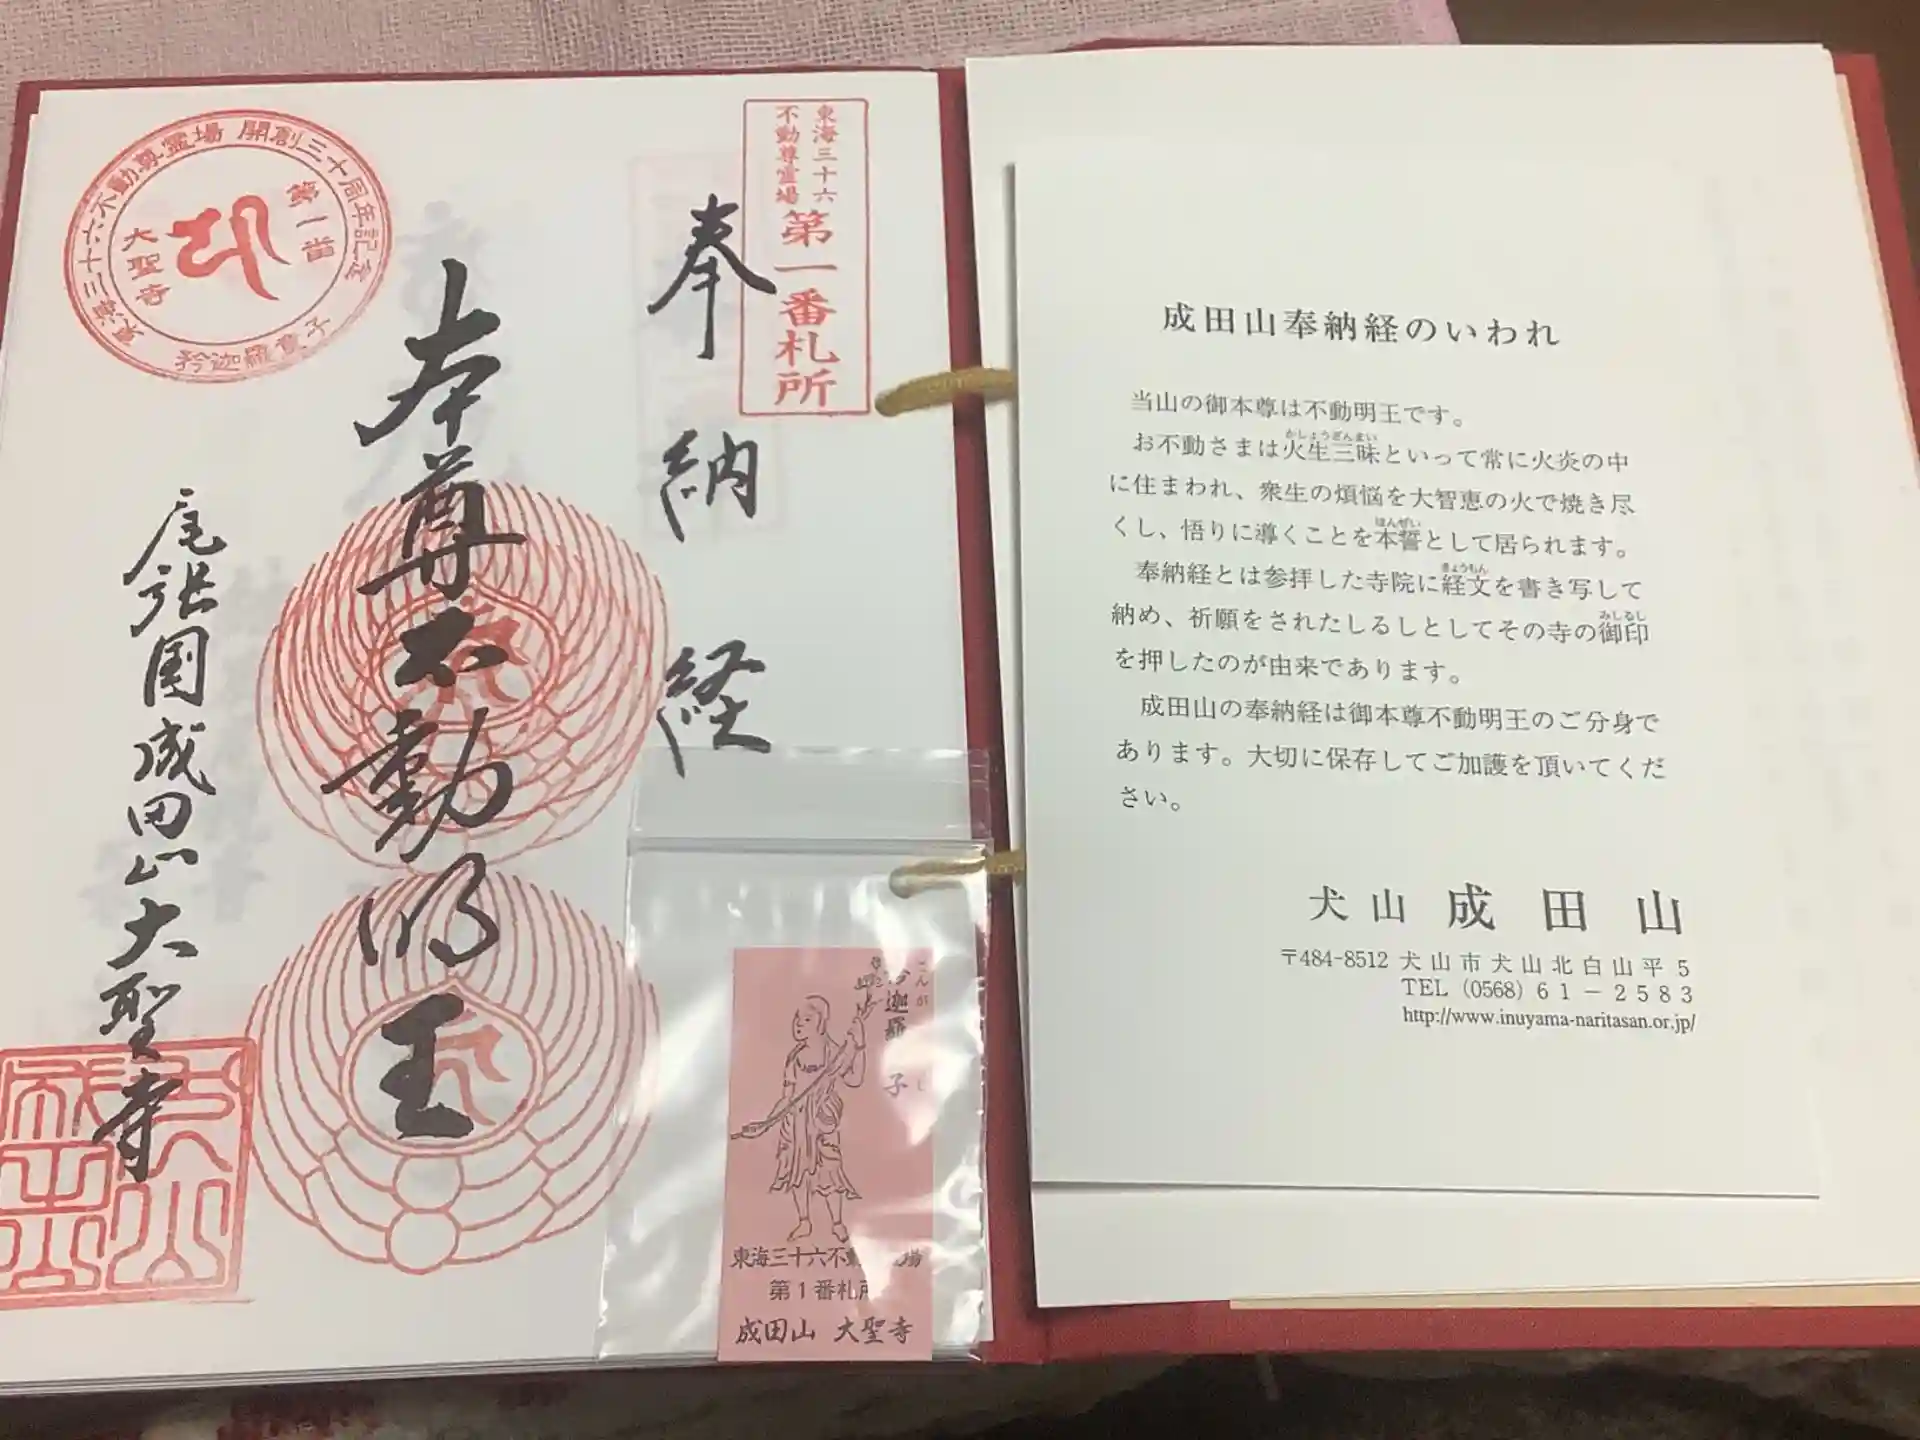 東海三十六不動尊霊場 開創三十周年記念
第一番
大聖寺
矜迦羅童子
東海三十六
不動尊霊場
第一番札所
奉納経
本尊不動明王
尾張国成田山大聖寺
迦羅
子
東海三十六不動
場
第1番札所
成田山 大聖寺
成田山奉納経のいわれ
当山の御本尊は不動明王です。
かしょうざんまい
お不動さまは火生三昧といって常に火炎の中
に住まわれ、衆生の煩悩を大智恵の火で焼き尽
ほんぜい
くし、悟りに導くことを本誓として居られます。
きょうもん
奉納経とは参拝した寺院に経文を書き写して
みしるし
納め、祈願をされたしるしとしてその寺の御印
を押したのが由来であります。
成田山の奉納経は御本尊不動明王のご分身で
あります。大切に保存してご加護を頂いてくだ
さい。
犬山 成田山
〒484-8512 犬山市犬山北白山平5
TEL (0568) 61-2583
http://www.inuyama-naritasan.or.jp/